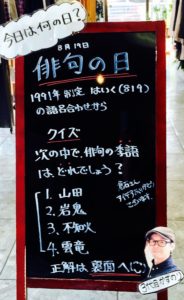 今日は何の日?
8月19日
俳句の日
1991年制定 はいく(819)
の語呂合わせから
クイズ
次の中で、俳句の季語
は、どれでしょう?
1. 山田
2. 岩鬼
3. 不知火
4. 雲竜
正解は、裏面へ
3代目かずのり